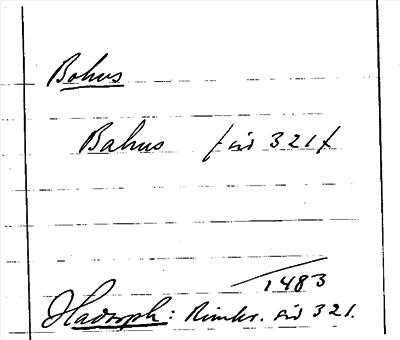 Bohus
Bahus / sid 321 /
1483
Hadorph: Rimkr. sid 321.